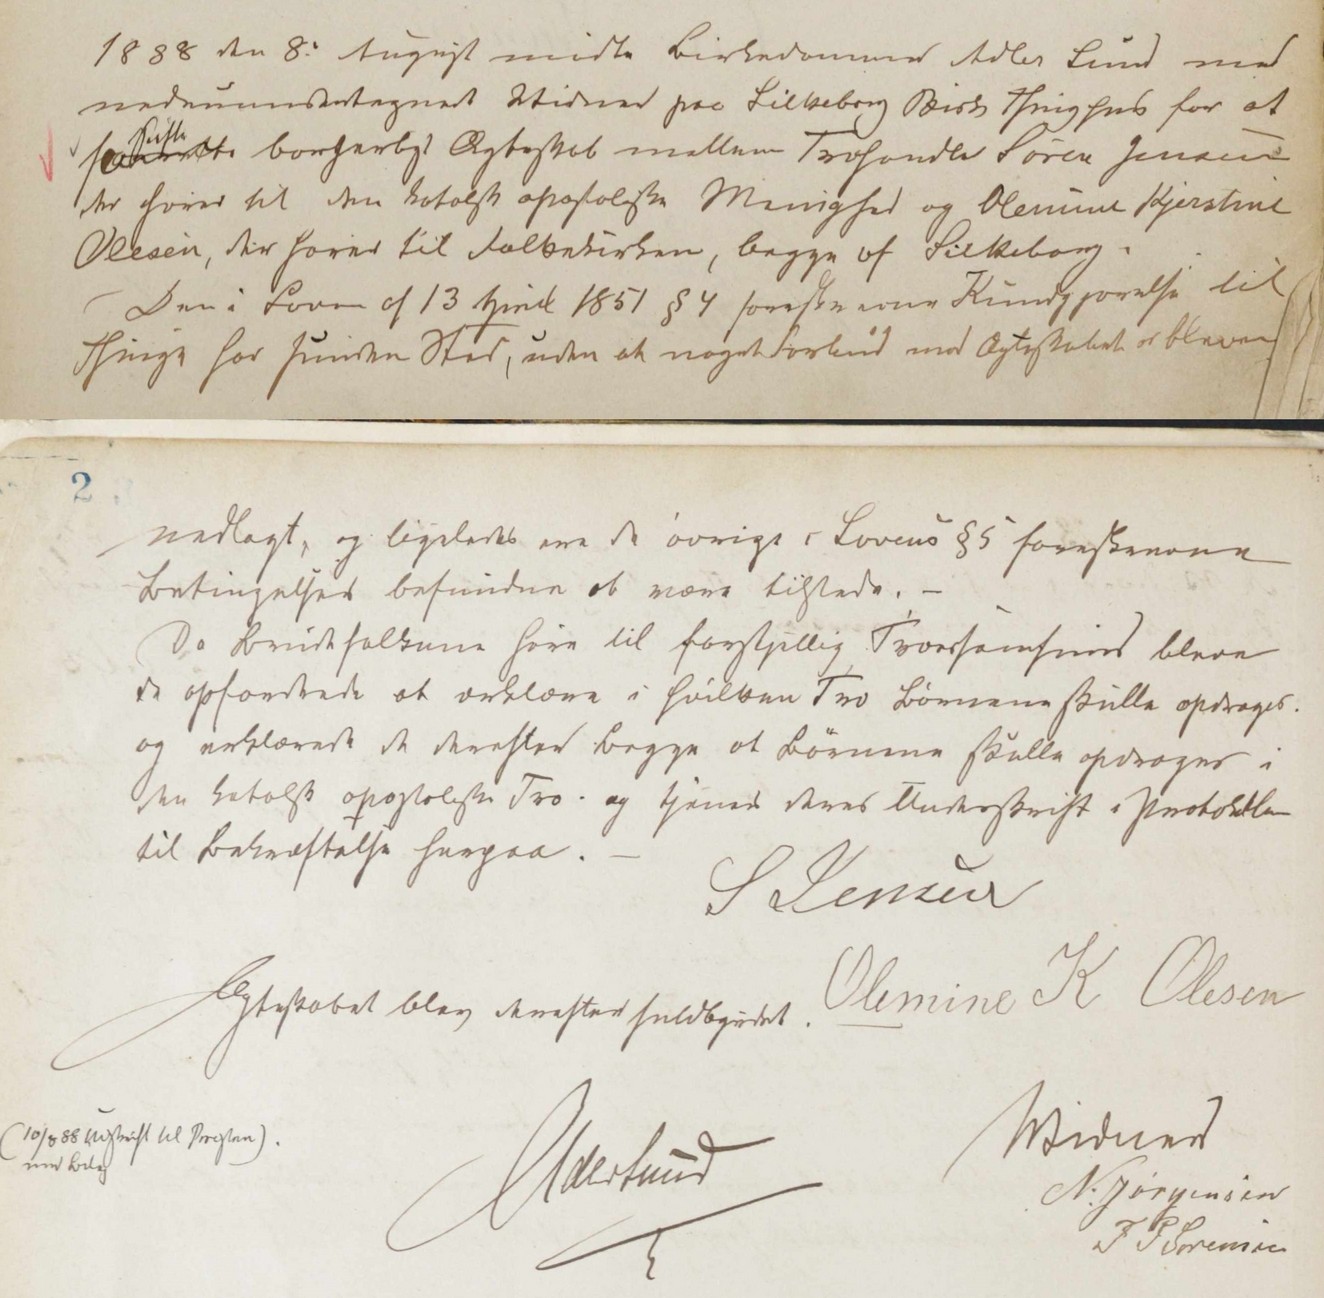 1888 den 8: August mødte Birkedommer Adler Lund med
nedenundertegnede Vidner paa Silkeborg Birks Thinghus for at
stifte borgerligt Ægteskab mellem Træhandler Sören Jensen
der hører til den katolsk apostoliske Menighed og Olemine Kjerstine
Olesen, der hører til Folkekirken, begge af Silkeborg.
Den i Loven af 13 April 1851 § 4 foreskrevne Kundgjørelse til
Thinge har funden Sted, uden at noget Forbud mod Ægteskabet er bleven
2
nedlagt, og ligeledes ere de övrige i Lovens § 5 foreskrevne
Betingelser befundne at være tilstede. –
Da Brudefolkene höre til forskjellig Troessamfund bleve
de opfordrede at erklære i hvilken Tro Börnene skulle opdrages.
og erklærede de derefter begge at Börnene skulle opdrages i
den katolsk apostoliske Tro. og tjener deres Underskrift i Protokollen
til Bekræftelse herpaa. –
S Jensen
Ægteskabet blev derefter fuldbyrdet.
Olemine K Olesen
(10/8 88 Udskrift til Præsten).
med Bilag
Adler Lund
Vidner
N. Jörgensen
P Sörensen